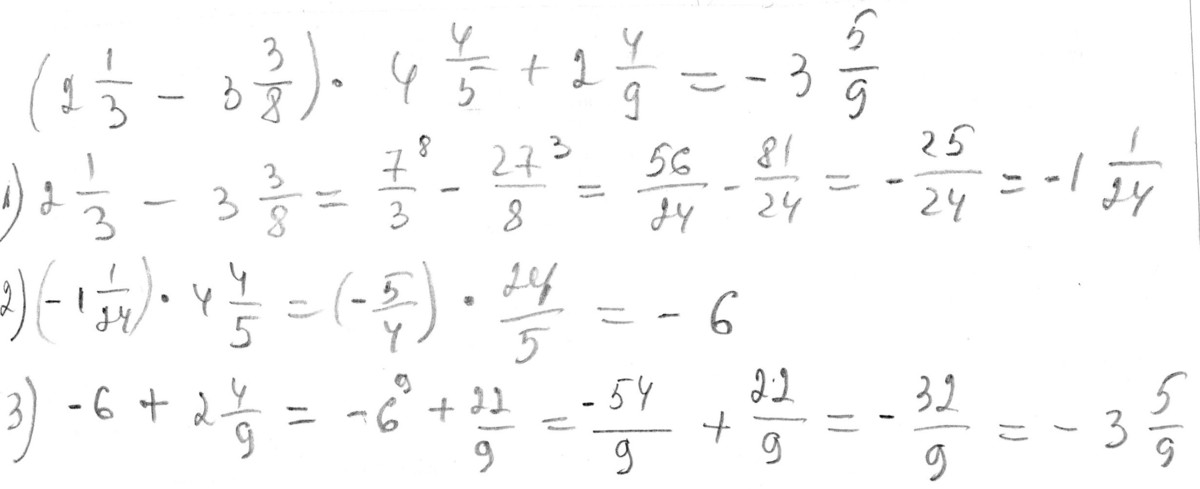 (2 1/3 - 3 3/8) · 4 4/5 + 2 4/9 = - 3 5/9
1) 2 1/3 - 3 3/8 = 7^8/3 - 27^3/8 = 56/24 - 81/24 = - 25/24 = -1 1/24
2) (-1 1/24) · 4 4/5 = (- 5/4) · 24/5 = - 6
3) -6 + 2 4/9 = -6^9 + 22/9 = -54/9 + 22/9 = - 32/9 = - 3 5/9